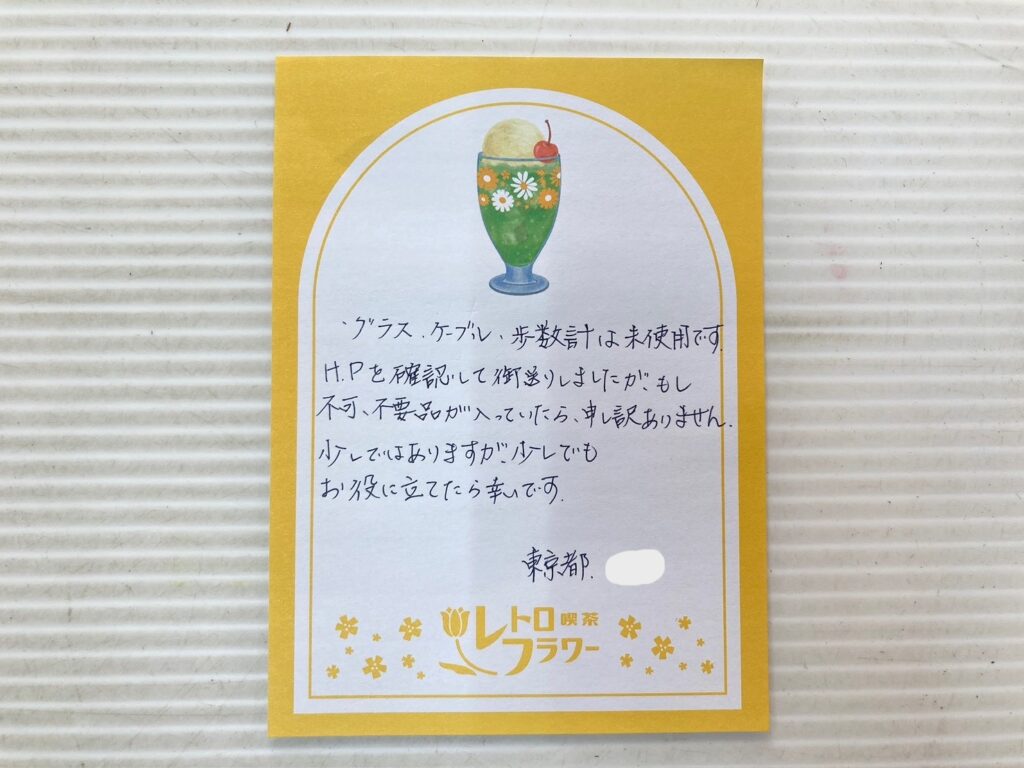 ・グラス、ケーブル、歩数計は未使用です。
H.Pを確認して御送りしましたが、もし
不可、不要品が入っていたら、申し訳ありません。
少しではありますが、少しでも
お役に立てたら幸いです。
東京都.
レトロ喫茶
フラワー